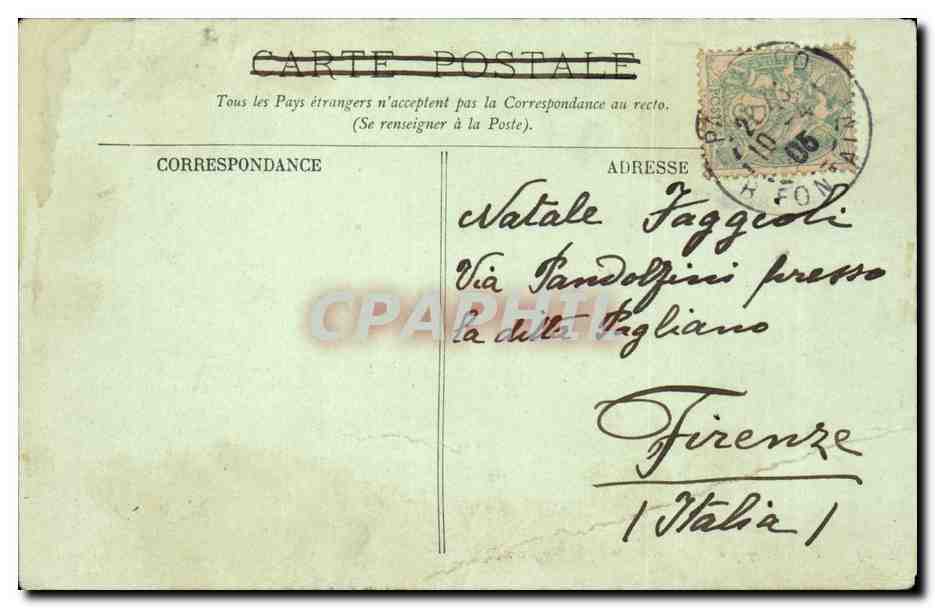 CARTE POSTALE
Tous les Pays étrangers n'acceptent pas la Correspondance au recto.
(Se renseigner à la Poste).
CORRESPONDANCE
ADRESSE
Natale Faggioli
Via Pandolfini presso
la ditta Pagliano
Firenze
(Italia)
CPAPHIL